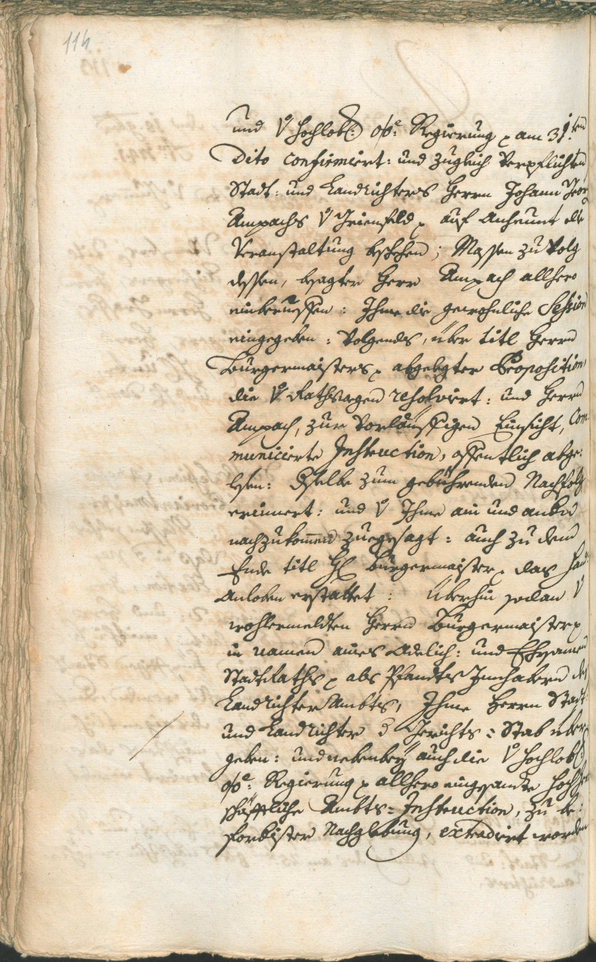 114
und V. hochlobl: o:ö: Regierung p am 31ten
Dito confirmiert: und zugleich verpflichten
Statt: und Landrichters Herrn Johann Geor
Ampachs V. Grienfeld p auf anheunt die
Veranstaltung beschehen; Massen zu volg
dessen, besagter Herr Ampach allhero
einberueffen: Ihme die gewohnliche Session
eingegeben: volgends, über titl Herrn
Burgermaisters p abgelegter Proposition
die V. Rathsagen resolvirt: und Herrn
Ampach, zur vorleüffigen Einsicht, Com
municierte Instruction, offentlich abge:
lesen: Selbe zum gebührenden Nachfolg
erinnert: und V. Ihme ain und anders
nachzukomen zuegesagt: auch zu dem
Ende titl H: Burgermaister p das
Anloben erstattet: Überhin sodan V.
wohlermeldten Herrn Burgermaister p
in namen aines Adelich: und Ehrsamen
StattRaths p als Pfandts Innhabern des
Landrichter Ambts, Ihme Herrn Statt
und Landrichter d Gerichts=Stab über
geben: und nebenbey auch die V. hochlobl:
o:ö: Regierung p allhero eingesante
schäfftliche Ambts=Instruction, zu
Nachgelebung, extradirt worden